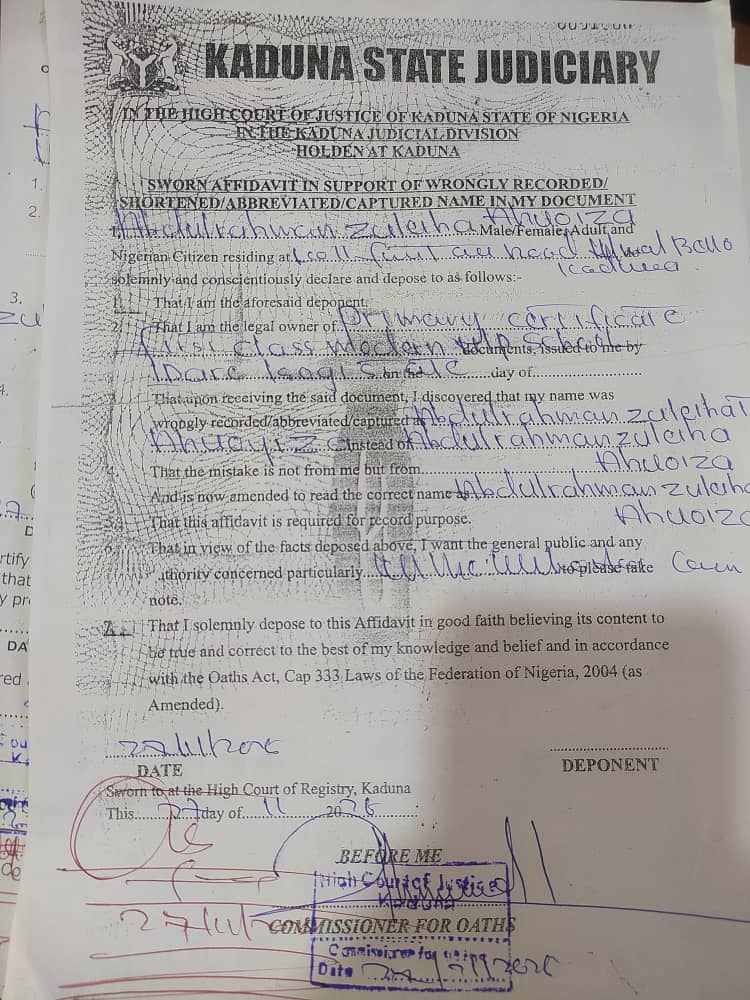 KADUNA STATE JUDICIARY
IN THE HIGH COURT OF JUSTICE OF KADUNA STATE OF NIGERIA
IN THE KADUNA JUDICIAL DIVISION
HOLDEN AT KADUNA
SWORN AFFIDAVIT IN SUPPORT OF WRONGLY RECORDED/
SHORTENED/ABBREVIATED/CAPTURED NAME IN MY DOCUMENT
I, Abdulrahman zuleiha Ahuoiza Male/Female, Adult and
Nigerian Citizen residing at road Bello
Kaduna
solemnly and conscientiously declare and depose to as follows:-
1. That I am the aforesaid deponent.
2. That I am the legal owner of primary certificate
first class modern school documents, issued to me by
on the day of
3. That upon receiving the said document, I discovered that my name was
wrongly recorded/abbreviated/captured as Abdulrahman zuleihat
instead of Abdulrahman zuleiha
Ahuoiza
4. That the mistake is not from me but from
And is now amended to read the correct name as Abdulrahman zuleiha
Ahuoiza
5. That this affidavit is required for record purpose.
6. That in view of the facts deposed above, I want the general public and any
authority concerned particularly to please take
note.
7. That I solemnly depose to this Affidavit in good faith believing its content to
be true and correct to the best of my knowledge and belief and in accordance
with the Oaths Act, Cap 333 Laws of the Federation of Nigeria, 2004 (as
Amended).
DATE
DEPONENT
Sworn to at the High Court of Registry, Kaduna
This 27 day of 11 20
BEFORE ME
High Court of Justice
Kaduna
27/11/
COMMISSIONER FOR OATHS
Commissioner for
Date